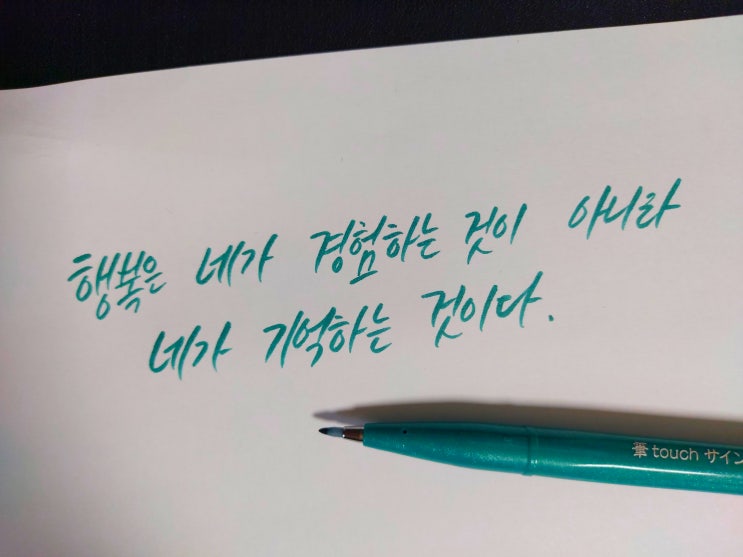 행복은 네가 경험하는 것이 아니라
네가 기억하는 것이다.
筆touch サイン